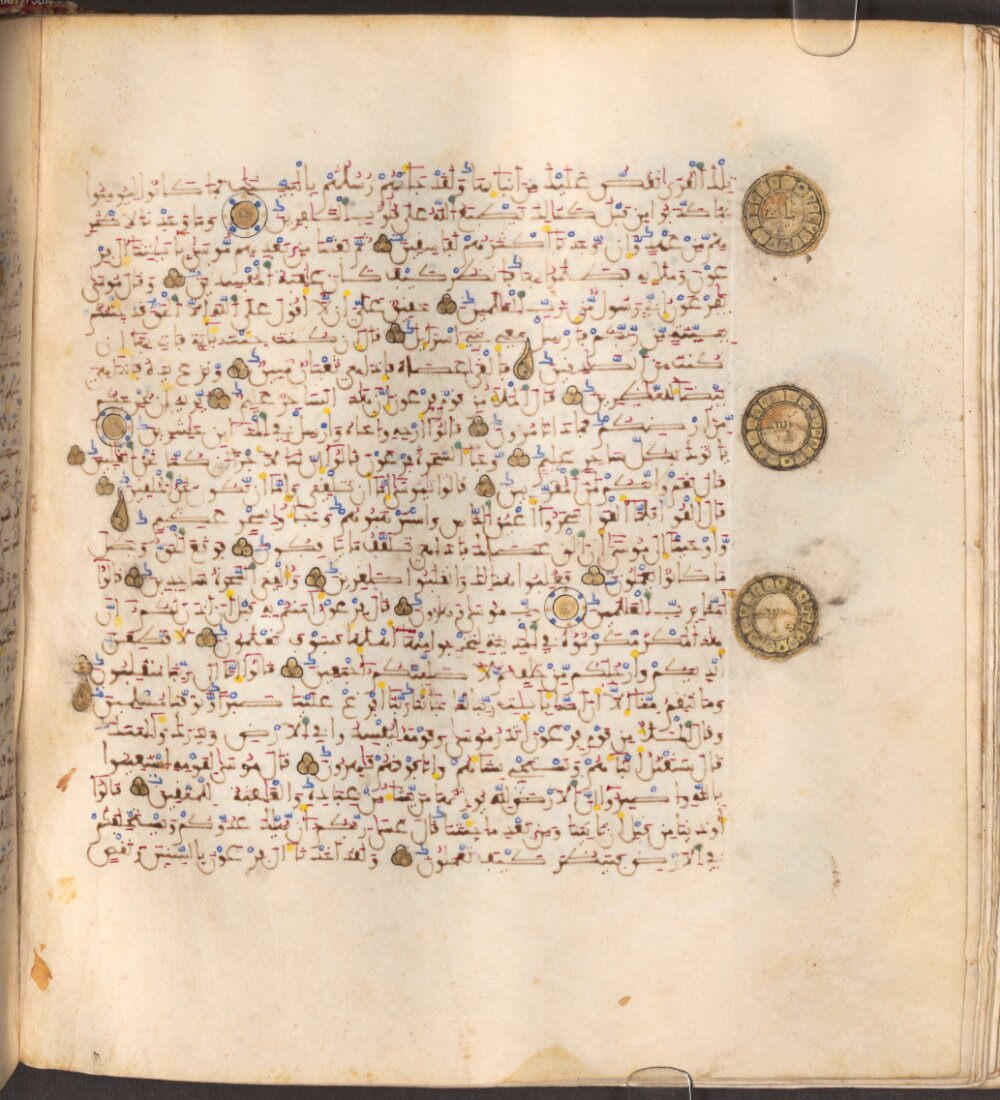 تلك القرى نقص عليك من انبائها ولقد جاتهم رسلهم بالبينت فما كانوا ليومنوا
بما كذبوا من قبل كذلك يطبع الله على قلوب الكفرين وما وجدنا لاكثر
هم من عهد وان وجدنا اكثرهم لفسقين ثم بعثنا من بعدهم موسى بايتنا الى فر
عون وملايه فظلموا بها فانظر كيف كان عقبة المفسدين وقال موسى
يفرعون اني رسول من رب العلمين حقيق على ان لا اقول على الله الا الحق قد جئتكم
ببينة من ربكم فارسل معي بني اسرايل قال ان كنت جئت باية فات بها ان
كنت من الصدقين فالقى عصاه فاذا هي ثعبان مبين ونزع يده فاذا هي
بيضا للنظرين قال الملا من قوم فرعون ان هذا لسحر عليم يريد ان يخرجكم
من ارضكم فماذا تامرون قالوا ارجه واخاه وارسل في المداين حشرين
ياتوك بكل سحر عليم وجا السحرة فرعون قالوا ان لنا لاجرا ان كنا نحن الغلبين
قال نعم وانكم لمن المقربين قالوا يموسى اما ان تلقي واما ان نكون نحن الملقين
قال القوا فلما القوا سحروا اعين الناس واسترهبوهم وجاو بسحر عظيم
واوحينا الى موسى ان الق عصاك فاذا هي تلقف ما يافكون فوقع الحق وبطل
ما كانوا يعملون فغلبوا هنالك وانقلبوا صغرين والقي السحرة سجدين قالوا
امنا برب العلمين رب موسى وهرون قال فرعون امنتم به قبل ان اذن لكم ان
هذا لمكر مكرتموه في المدينة لتخرجوا منها اهلها فسوف تعلمون لاقطعن
ايديكم وارجلكم من خلف ثم لاصلبنكم اجمعين قالوا انا الى ربنا منقلبون
وما تنقم منا الا ان امنا بايت ربنا لما جاتنا ربنا افرغ علينا صبرا وتوفنا مسلمين
وقال الملا من قوم فرعون اتذر موسى وقومه ليفسدوا في الارض ويذرك والهتك
قال سنقتل ابناهم ونستحي نساهم وانا فوقهم قهرون قال موسى لقومه استعينوا
بالله واصبروا ان الارض لله يورثها من يشا من عباده والعقبة للمتقين قالوا
اوذينا من قبل ان تاتينا ومن بعد ما جئتنا قال عسى ربكم ان يهلك عدوكم ويستخلفكم
في الارض فينظر كيف تعملون ولقد اخذنا ال فرعون بالسنين ونقص